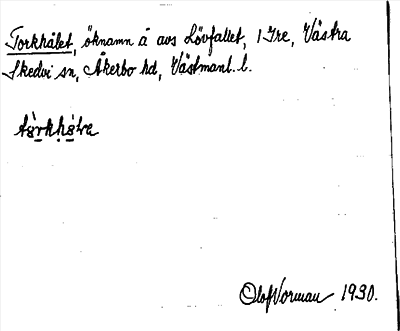 Torkhålet, öknamn å avs Lövfallet, 1 Yre, Västra
Skedvi sn, Åkerbo hd, Västmanl. l.
Olof Norman 1930.